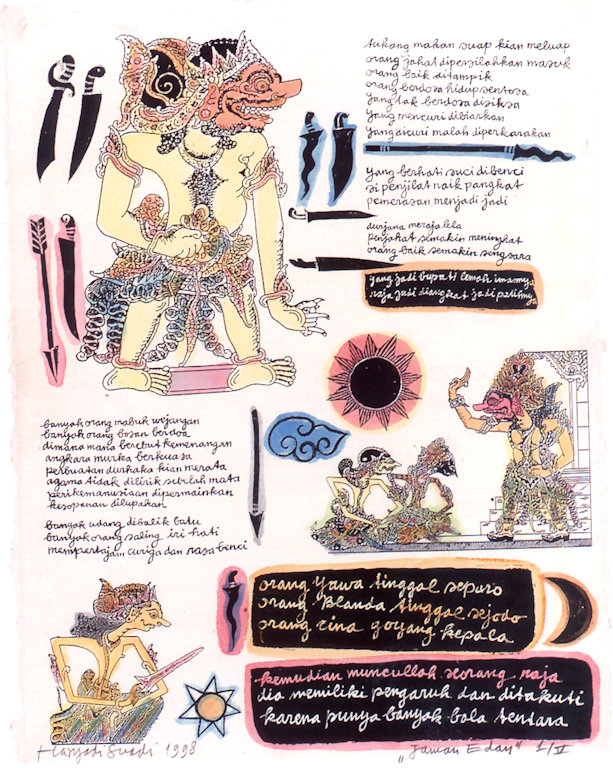 tukang makan suap kian meluap
orang jahat dipersilahkan masuk
orang baik ditampik
orang berdosa hidup sentosa
yang tak berdosa disiksa
yang mencuri dibiarkan
yang dicuri malah diperkarakan
yang berhati suci dibenci
si penjilat naik pangkat
pemerasan menjadi jadi
durjana merajalela
penjahat semakin meningkat
orang baik semakin sengsara
yang jadi bupati lemah imannya
raja jadi diangkat jadi patihnya
banyak orang mabuk wejangan
banyak orang bosan berdoa
dimana mana berebut kemenangan
angkara murka berkuasa
perbuatan durhaka kian merata
agama tidak dilirik sebelah mata
perikemanusiaan dipermainkan
kesopanan dilupakan
banyak udang dibalik batu
banyak orang saling iri hati
mempertajam curiga dan rasa benci
orang yawa tinggal separo
orang blanda tinggal sejodo
orang cina goyang kepala
kemudian muncullah seorang raja
dia memiliki pengaruh dan ditakuti
karena punya banyak bala tentara
Haryadi Suadi 1998
"Jaman Edan" 1/V